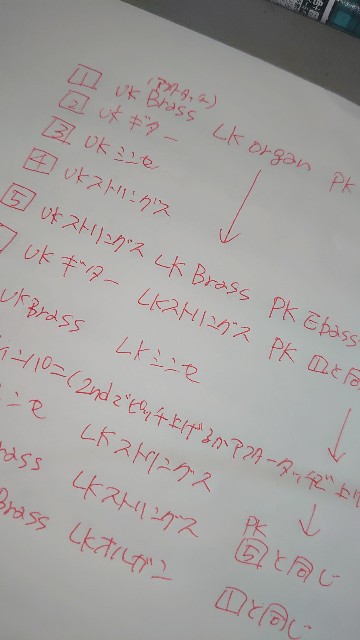 1 UK Brass (アフタータッチ) LK organ PK
2 UK ギター
3 UK シンセ
4 UKストリングス
5 UKストリングス LK Brass PK Ebass
UK ギター LKストリングス PK 1と同
UKBrass LKシンセ
(2ndでピッチ上げるかアフタータッチで上
シンセ LKストリングス
rass LKストリングス PK 5と同じ
Brass LKオルガン 1と同じ